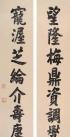 望隆梅鼎資調燮
寵渥芝綸介壽康